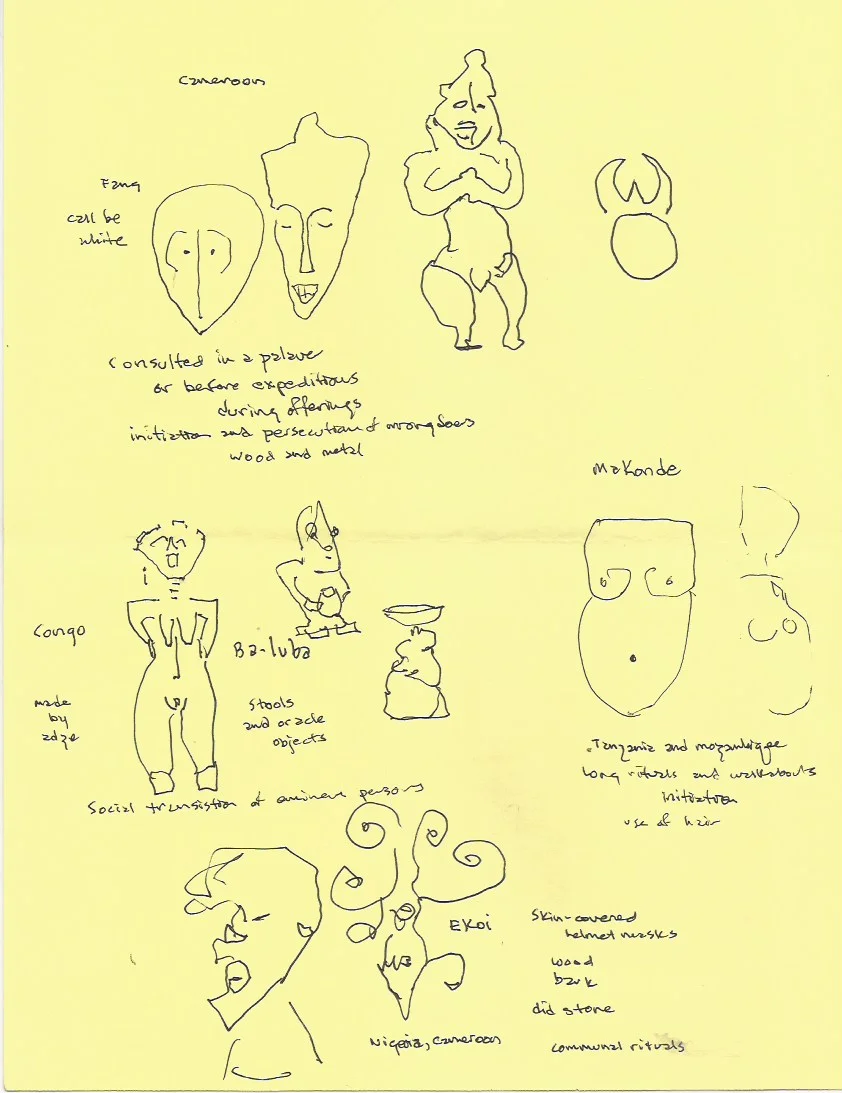 Cameroon
Fang
can be
white
Consulted in a palaver
or before expeditions
during offerings
initiation and persecution of wrongdoers
wood and metal
Makonde
Congo
Ba-luba
made
by
adze
Stools
and oracle
objects
Tanzania and mozambique
Long rituals and walkabouts
initiation
use of hair
Social transistion of eminent persons
EKoi
Skin-covered
helmet masks
wood
bark
did stone
Nigeria, Cameroon
communal rituals